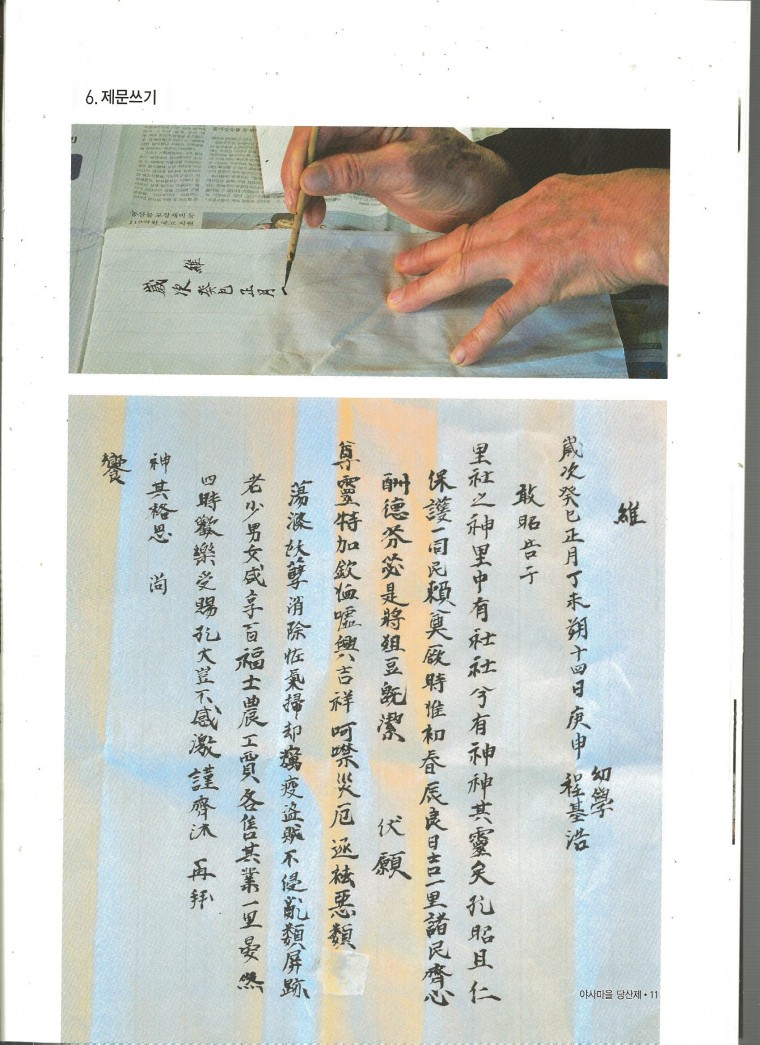 6. 제문쓰기
維
歲次癸巳正月
維
歲次癸巳正月丁未朔十四日庚申 幼學 程基浩
敢昭告于
里社之神里中有社社兮有神神其靈矣孔昭且仁
保護一同民賴奠厥時惟初春辰良日吉一里諸民齊心
酬德芬苾是將俎豆旣潔 伏願
尊靈特加欽恤噓興吉祥呵噤災厄逐祛惡類
蕩滌妖孽消除怪氣掃却癘疫盜賊不侵亂類屛跡
老少男女咸享百福士農工賈各售其業一里晏然
四時歡樂受賜孔大豈不感激謹齊沐 再拜
神其格思 尚
饗
야사마을 당산제 • 11